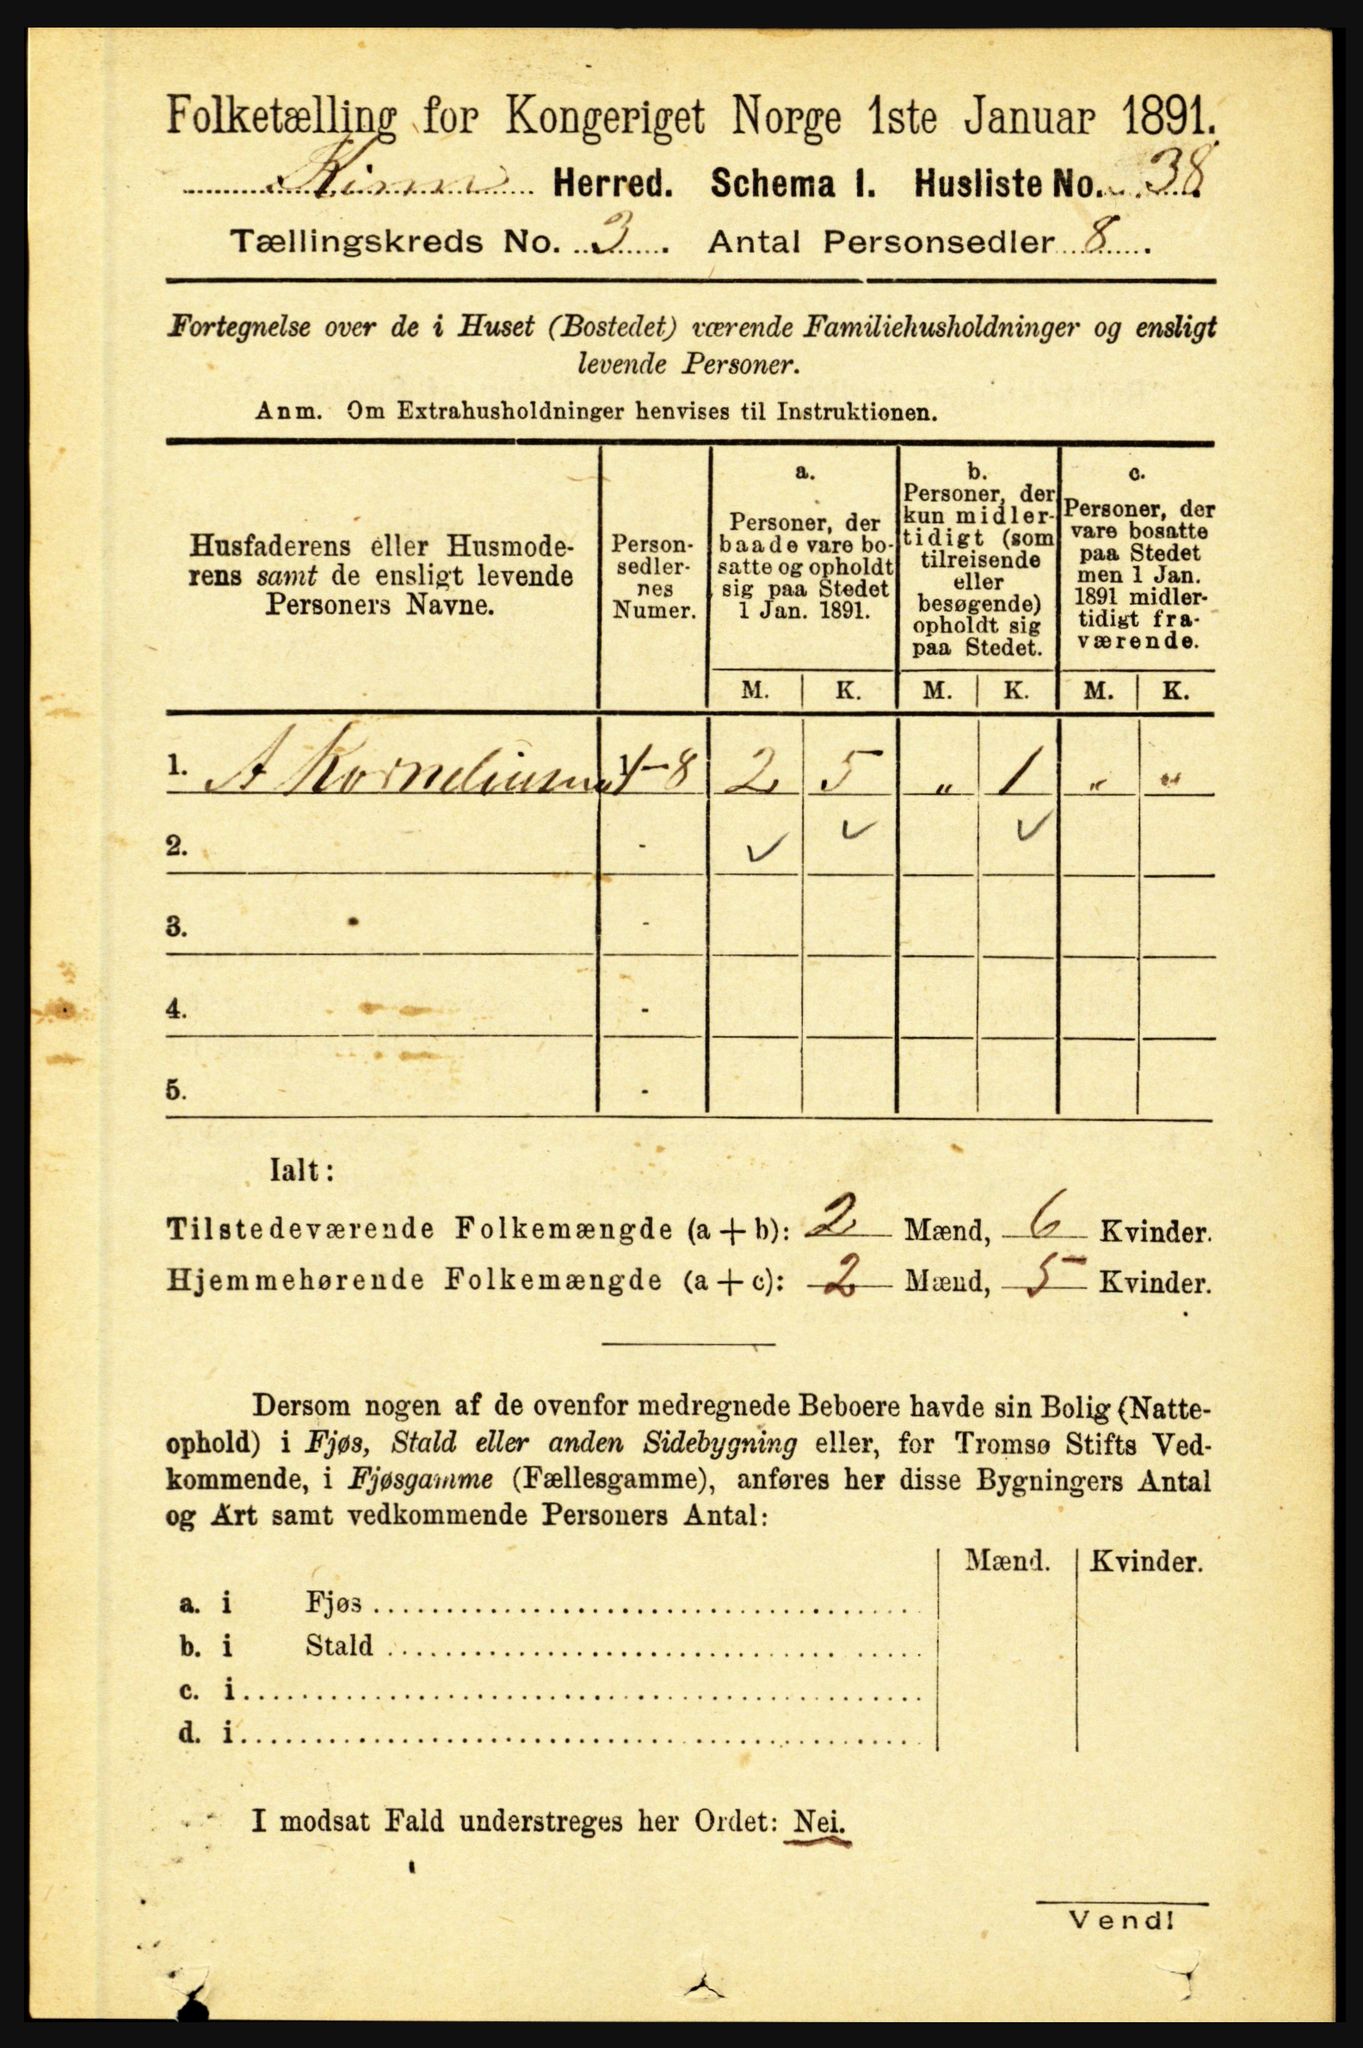 Folketælling for Kongeriget Norge 1ste Januar 1891.
Kinn Herred. Schema I. Husliste No. 38
Tællingskreds No. 3. Antal Personsedler 8.
Fortegnelse over de i Huset (Bostedet) værende Familiehusholdninger og ensligt
levende Personer.
Anm. Om Extrahusholdninger henvises til Instruktionen.
Husfaderens eller Husmode-
rens samt de ensligt levende
Personers Navne.
Person-
sedler-
nes
Numer.
a.
Personer, der
baade vare bo-
satte og opholdt
sig paa Stedet
1 Jan. 1891.
b.
Personer, der
kun midler-
tidigt (som
tilreisende
eller
besøgende)
opholdt sig
paa Stedet.
c.
Personer, der
vare bosatte
paa Stedet
men 1 Jan.
1891 midler-
tidigt fra-
værende.
M. K. M. K. M. K.
1. A Korneliusen 1-8 2 5 „ 1 „ „
2. - ✓ ✓ ✓
3. -
4. -
5. -
Ialt:
Tilstedeværende Folkemængde (a + b): 2 Mænd, 6 Kvinder.
Hjemmehørende Folkemængde (a + c): 2 Mænd, 5 Kvinder.
Dersom nogen af de ovenfor medregnede Beboere havde sin Bolig (Natte-
ophold) i Fjøs, Stald eller anden Sidebygning eller, for Tromsø Stifts Ved-
kommende, i Fjøsgamme (Fællesgamme), anføres her disse Bygningers Antal
og Art samt vedkommende Personers Antal:
Mænd. Kvinder.
a. i Fjøs
b. i Stald
c. i
d. i
I modsat Fald understreges her Ordet: Nei.
Vend!